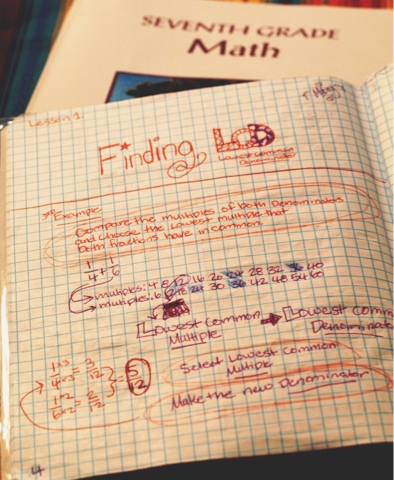 SEVENTH GRADE
Math
Lesson 1
Finding LCD
Lowest Common
Denominator
Example
Compare the multiples of both Denominators
and choose the Lowest multiple that
both fractions have in common.
1/4 + 1/6
multiples: 4 8 12 16 20 24 28 32 36 40
multiples: 6 12 18 24 30 36 42 48 54 60
Lowest Common
Multiple
Lowest Comm
Denominato
1×3/4×3 = 3/12
1×2/6×2 = 2/12
= 5/12
Select Lowest Common
Multiple
Make the new Denominator
4